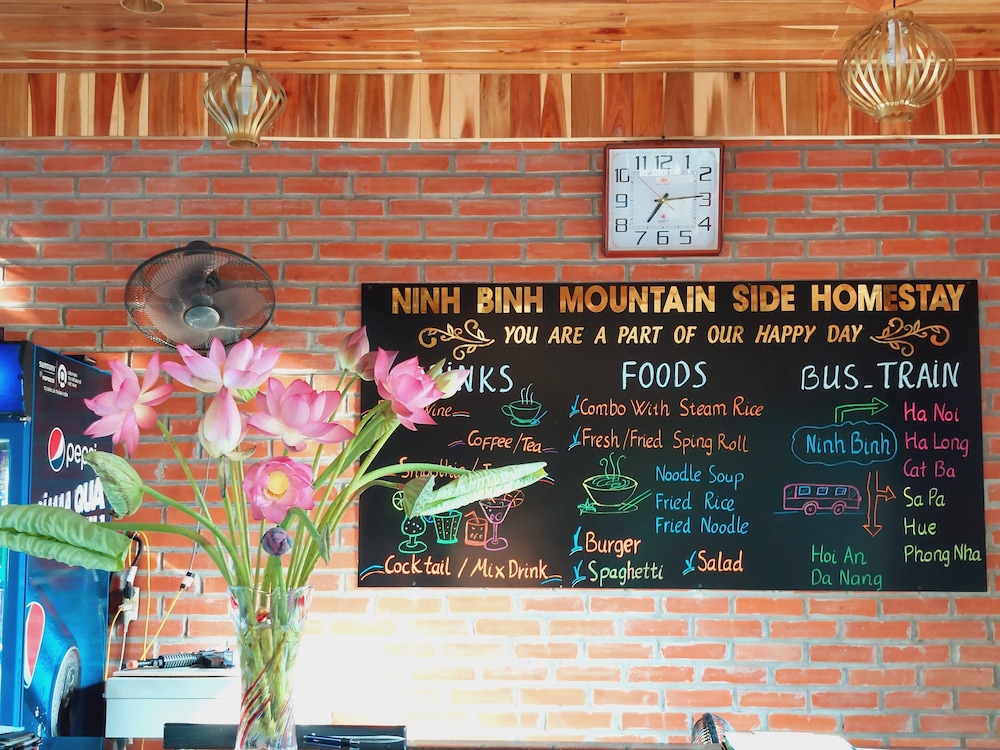 11 12 1
10 2
9 3
8 4
7 6 5
NINH BINH MOUNTAIN SIDE HOMESTAY
YOU ARE A PART OF OUR HAPPY DAY
NKS
Coffee/Tea
Cocktail / Mix Drink
FOODS
Combo With Steam Rice
Fresh/Fried Sping Roll
Noodle Soup
Fried Rice
Fried Noodle
Burger
Spaghetti
Salad
BUS_TRAIN
Ninh Binh
Ha Noi
Ha Long
Cat Ba
Sa Pa
Hue
Phong Nha
Hoi An
Da Nang
SUNTORY
PEPSICO
pepsi
QUA